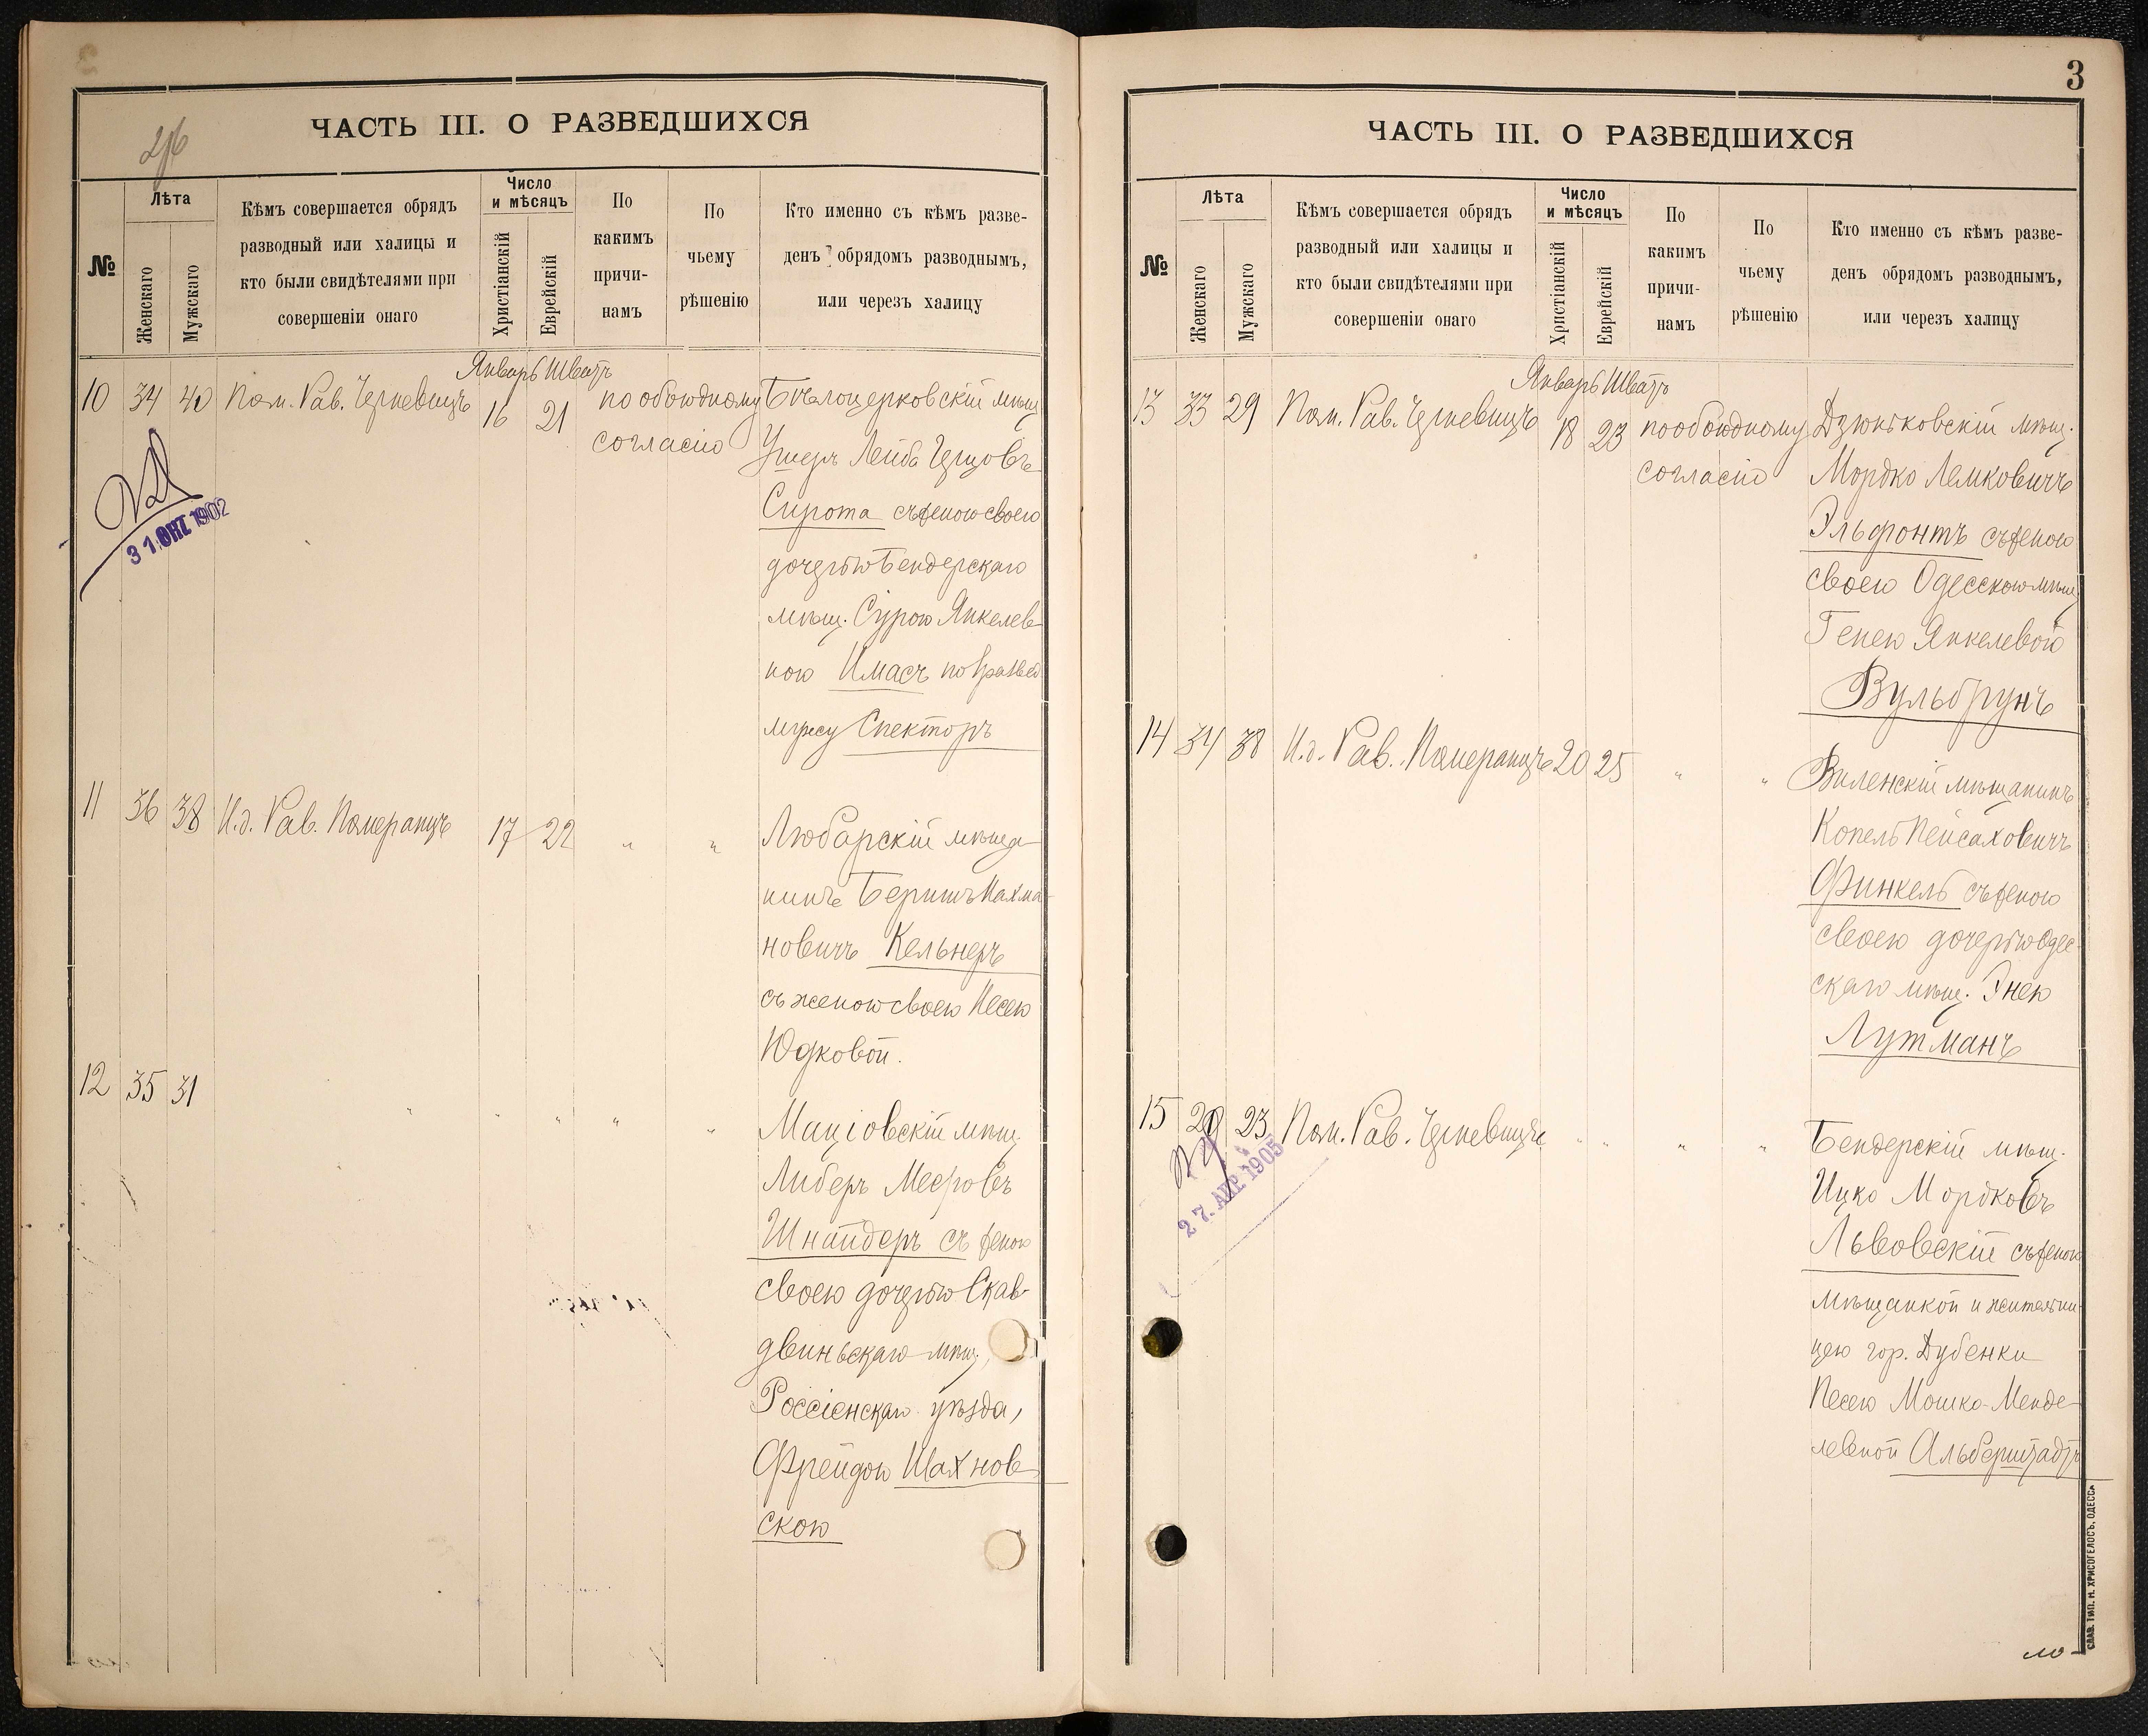 ЧАСТЬ III. О РАЗВЕДШИХСЯ
№
Лѣта
Женскаго
Мужскаго
Кѣмъ совершается обрядъ
разводный или халицы и
кто были свидѣтелями при
совершеніи онаго
Число
и мѣсяцъ
Христіанскій
Еврейскій
По
какимъ
причи-
намъ
По
чьему
рѣшенію
Кто именно съ кѣмъ разве-
денъ обрядомъ разводнымъ,
или черезъ халицу
Январь Шватъ
10 34 40 Пом. Рав. Черневицъ 16 21 по обоюдному
согласію
Бѣлоцерковскій мѣщ.
Ушеръ Лейба Герцовъ
Сирота съ женою своею
дочерью Бендерскаго
мѣщ. Сурою Янкелев-
ною Имасъ по развед.
мужу Спекторъ
31 ОКТ 1902
11 36 38 И.д. Рав. Померанцъ 17 22 " "
Любарскій мѣща-
нинъ Беришъ Нахма-
новичъ Кельнеръ
съ женою своею Несею
Юдковой.
12 35 31 " " " " "
Маціовскій мѣщ.
Либеръ Мееровъ
Шнайдеръ съ женою
своею дочерью Скав-
двиньскаго мѣщ.,
Россіенскаго уѣзда,
Фрейдою Шахнов-
скою
3
ЧАСТЬ III. О РАЗВЕДШИХСЯ
№
Лѣта
Женскаго
Мужскаго
Кѣмъ совершается обрядъ
разводный или халицы и
кто были свидѣтелями при
совершеніи онаго
Число
и мѣсяцъ
Христіанскій
Еврейскій
По
какимъ
причи-
намъ
По
чьему
рѣшенію
Кто именно съ кѣмъ разве-
денъ обрядомъ разводнымъ,
или черезъ халицу
Январь Шватъ
13 33 29 Пом. Рав. Черневицъ 18 23 по обоюдному
согласію
Дзюньковскій мѣщ.
Мордко Лемковичъ
Эльфонтъ съ женою
своею Одесскою мѣщ.
Генею Янкелевой
Вульбрунъ
14 34 38 И.д. Рав. Померанцъ 20 25 " "
Виленскій мѣщанинъ
Копель Пейсаховичъ
Финкель съ женою
своею дочерью Одес-
скаго мѣщ. Энею
Лутманъ
15 29 23 Пом. Рав. Черневицъ " " " "
Бендерскій мѣщ.
Ицко Мордковъ
Львовскій съ женою
мѣщанкой и жительни-
цею гор. Дубенки
Песею Мошко-Менде-
левной Альберштадтъ
27. АПР. 1905
СЛАВ. ТИП. Н. ХРИСОГЕЛОСЪ, ОДЕССА